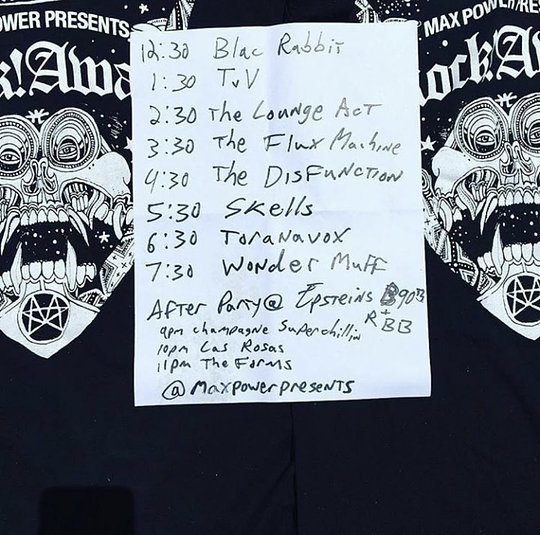 POWER PRESENTS
MAX POWER/RES
k!Awa
ock!A
12:30 Blac Rabbit
1:30 TvV
2:30 The Lounge Act
3:30 The Flux Machine
4:30 The DisFunction
5:30 Skells
6:30 Toranavox
7:30 Wonder Muff
After Party @ Epsteins B90th
R+BB
9pm champagne Superchillin
10pm Las Rosas
11pm The Forms
@maxpowerpresents